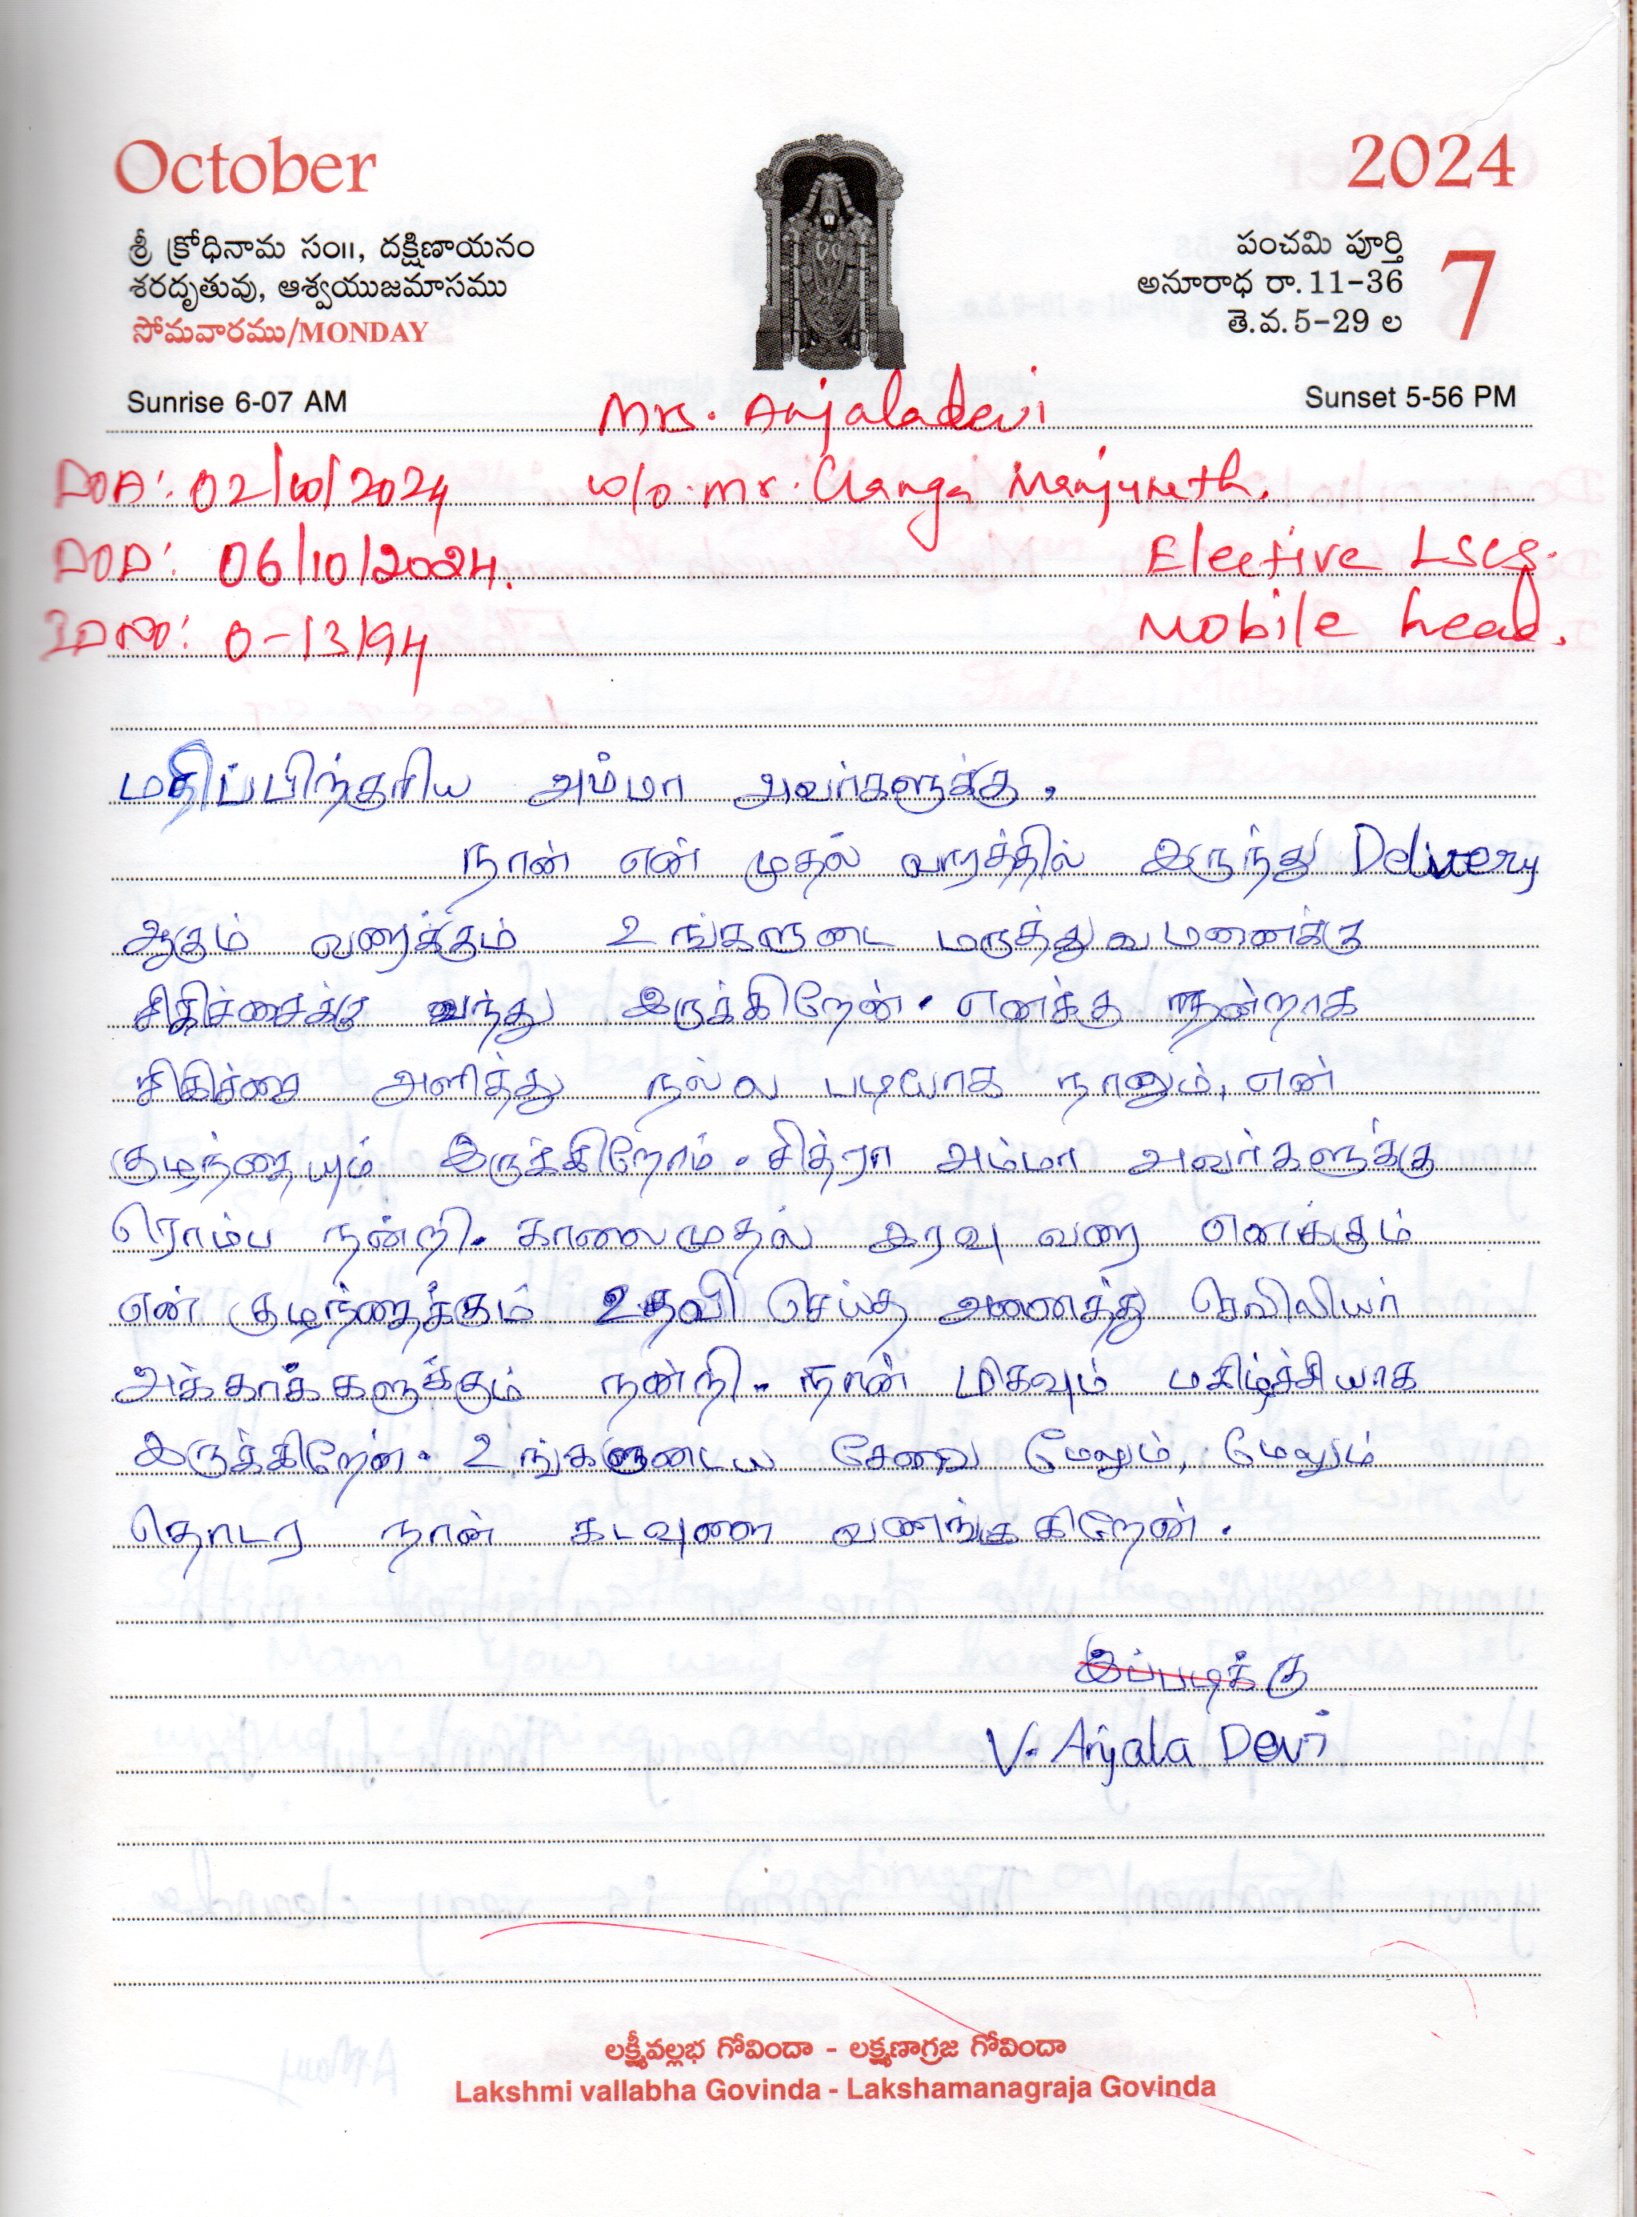 October
2024
శ్రీ క్రోధినామ సం॥, దక్షిణాయనం
శరదృతువు, ఆశ్వయుజమాసము
సోమవారము/MONDAY
పంచమి పూర్తి
అనూరాధ రా. 11-36
తె.వ. 5-29 ల
7
Sunrise 6-07 AM
Sunset 5-56 PM
Mrs. Anjaladevi
DOA: 02/10/2024 w/o. Mr. Ganga Manjunath.
DOD: 06/10/2024.
Elective LSCS.
0-13194
Mobile head.
மதிப்பிற்குரிய அம்மா அவர்களுக்கு,
நான் என் முதல் வாரத்தில் இருந்து Delivery
ஆகும் வரைக்கும் உங்களுடை மருத்துவமனைக்கு
சிகிச்சைக்கு வந்து இருக்கிறேன். எனக்கு நன்றாக
சிகிச்சை அளித்து நல்ல படியாக நானும், என்
குழந்தையும் இருக்கிறோம். சித்ரா அம்மா அவர்களுக்கு
ரொம்ப நன்றி. காலைமுதல் இரவு வரை எனக்கும்
என் குழந்தைக்கும் உதவி செய்த அனைத்து செவிலியர்
அக்காக்களுக்கும் நன்றி. நான் மிகவும் மகிழ்ச்சியாக
இருக்கிறேன். உங்களுடைய சேவை மேலும், மேலும்
தொடர நான் கடவுளை வணங்குகிறேன்.
இப்படிக்கு
V. Anjala Devi
లక్ష్మీవల్లభ గోవిందా - లక్ష్మణాగ్రజ గోవిందా
Lakshmi vallabha Govinda - Lakshamanagraja Govinda